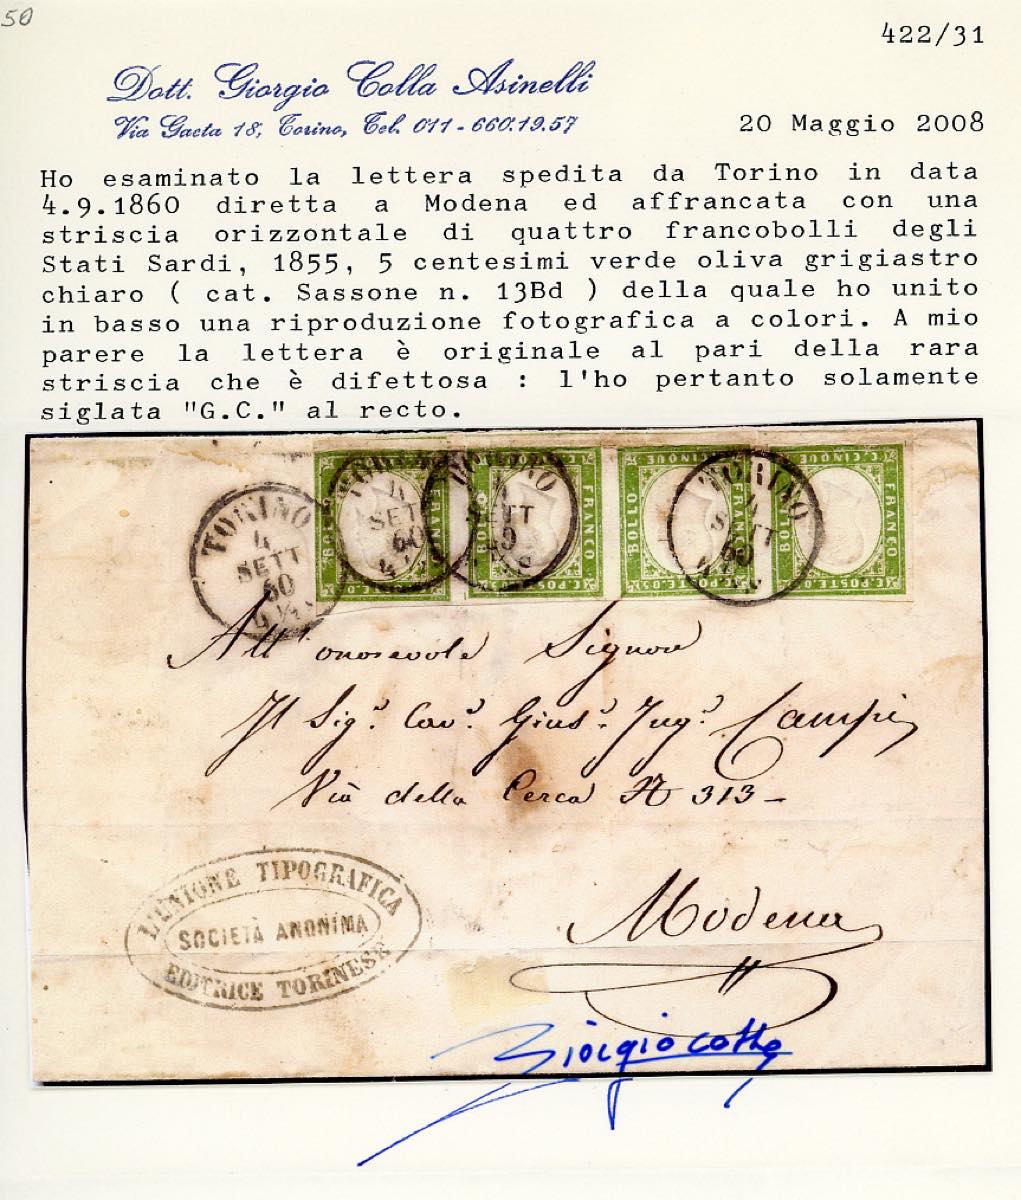 50
422/31
Dott. Giorgio Colla Asinelli
Via Gaeta 18, Torino, Tel. 011-660.19.57
20 Maggio 2008
Ho esaminato la lettera spedita da Torino in data
4.9.1860 diretta a Modena ed affrancata con una
striscia orizzontale di quattro francobolli degli
Stati Sardi, 1855, 5 centesimi verde oliva grigiastro
chiaro ( cat. Sassone n. 13Bd ) della quale ho unito
in basso una riproduzione fotografica a colori. A mio
parere la lettera è originale al pari della rara
striscia che è difettosa : l'ho pertanto solamente
siglata "G.C." al recto.
TORINO
4
SETT
60
4
SET
60
4
SETT
60
TORINO
4
SETT
60
C. CINQUE
C. CINQUE
C. CINQUE
BOLLO FRANCO
BOLLO FRANCO
BOLLO
BOLLO FRANCO
C. POSTE. O5
C. POSTE. O5
C. POSTE. O5
All'onorevole Signor
Il Sigr. Cavr. Giusr. Ingr. Campi
Via della Cerca N 313-
Modena
L'UNIONE TIPOGRAFICA
SOCIETÀ ANONIMA
EDITRICE TORINESE
Giorgio Colla